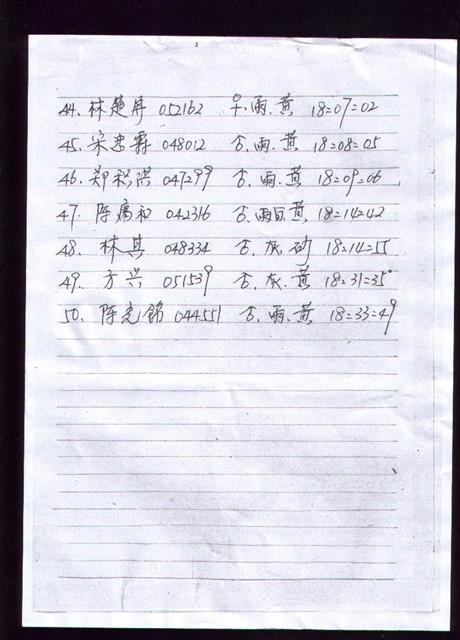 44. 林楚屏 052162 우.雨.黄 18=07=02
45. 宋 霖 048012 舌.雨.黄 18=08=05
46. 郑 洪 047299 舌.雨.黄 18=09=06
47. 陈 和 042316 舌.雨日.黄 18=14=42
48. 林其 048334 舌.灰.砂 18=14=55
49. 方兴 051539 舌.灰.黄 18=31=35
50. 陈克锦 044551 舌.雨.黄 18=33=49